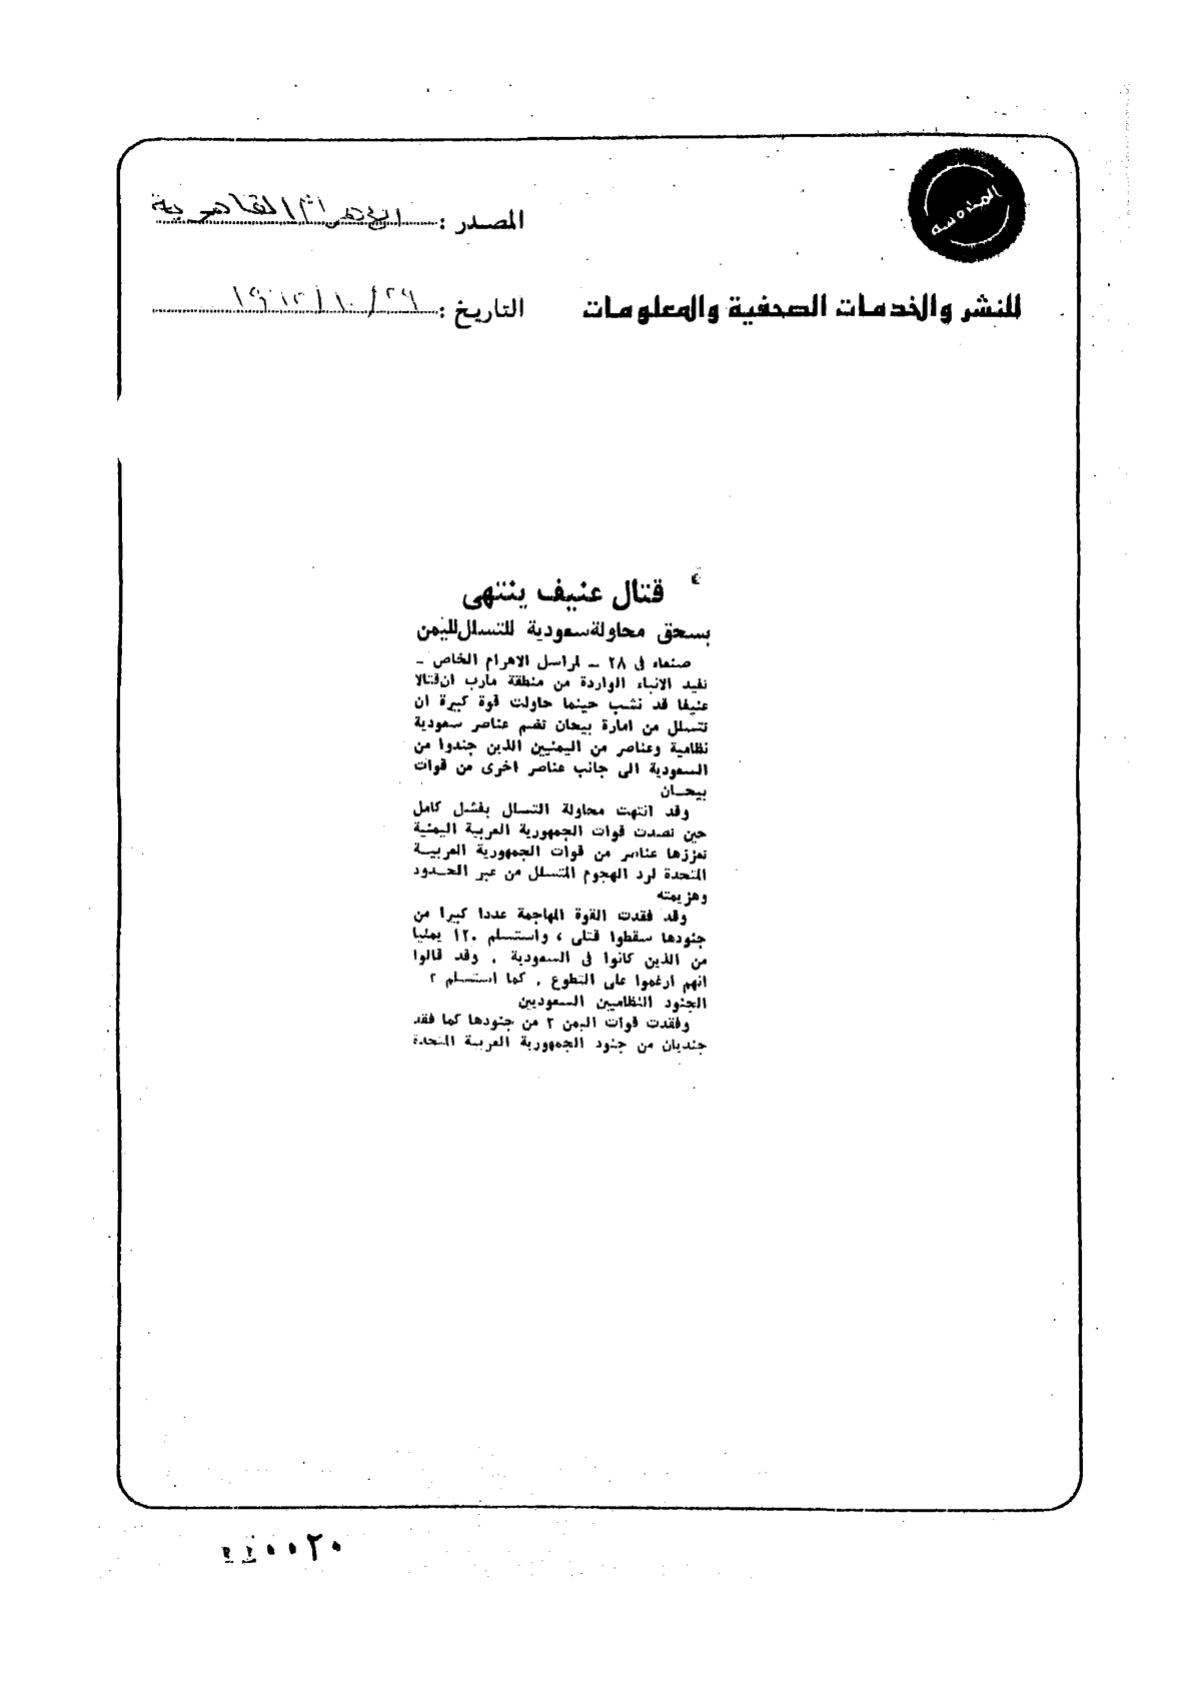 المحروسة
المصدر : الاهرام القاهرية
للنشر والخدمات الصحفية والمعلومات
التاريخ : ٢٩/١٠/١٩٦٢
قتال عنيف ينتهى
بسحق محاولة سعودية للتسلل لليمن
صنعاء فى ٢٨ ـ لمراسل الاهرام الخاص ـ
تفيد الانباء الواردة من منطقة مارب ان قتالا
عنيفا قد نشب حينما حاولت قوة كبيرة ان
تتسلل من امارة بيحان تضم عناصر سعودية
نظامية وعناصر من اليمنيين الذين جندوا من
السعودية الى جانب عناصر اخرى من قوات
بيحــان
وقد انتهت محاولة التسلل بفشل كامل
حين تصدت قوات الجمهورية العربية اليمنية
تعززها عناصر من قوات الجمهورية العربيــة
المتحدة لرد الهجوم المتسلل من عبر الحــدود
وهزيمته
وقد فقدت القوة المهاجمة عددا كبيرا من
جنودها سقطوا قتلى ، واستسلم ١٢٠ يمنيا
من الذين كانوا فى السعودية . وقد قالوا
انهم ارغموا على التطوع . كما استسلم ٢
الجنود النظاميين السعوديين
وفقدت قوات اليمن ٢ من جنودها كما فقد
جنديان من جنود الجمهورية العربية المتحدة